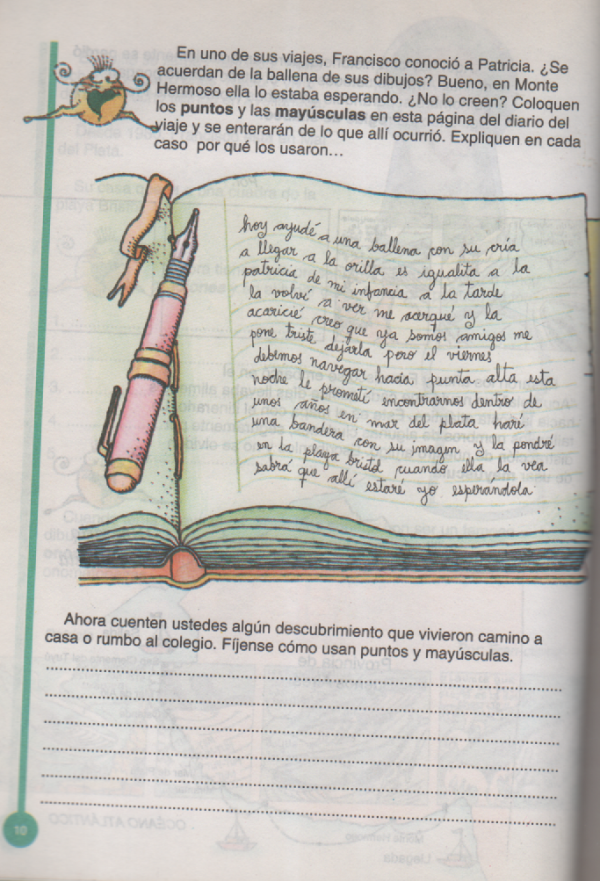 En uno de sus viajes, Francisco conoció a Patricia. ¿Se
acuerdan de la ballena de sus dibujos? Bueno, en Monte
Hermoso ella lo estaba esperando. ¿No lo creen? Coloquen
los puntos y las mayúsculas en esta página del diario del
viaje y se enterarán de lo que allí ocurrió. Expliquen en cada
caso por qué los usaron...
hoy ayudé a una ballena con su cría
a llegar a la orilla es igualita a la
patricia de mi infancia a la tarde
la volví a ver me acerqué y la
acaricié creo que ya somos amigos me
pone triste dejarla pero el viernes
debemos navegar hacia punta alta esta
noche le prometí encontrarnos dentro de
unos años en mar del plata haré
una bandera con su imagen y la pondré
en la playa bristol cuando ella la vea
sabrá que allí estaré yo esperándola
Ahora cuenten ustedes algún descubrimiento que vivieron camino a
casa o rumbo al colegio. Fíjense cómo usan puntos y mayúsculas.
10